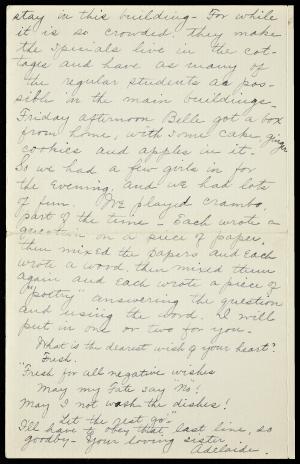 stay in this building - For while
it is so crowded they make
the specials live in the cot-
tages and have as many of
the regular students as pos-
sible in the main buildings -
Friday afternoon Belle got a box
from home, with some cake, ginger
cookies and apples in it.
So we had a few girls in for
the evening, and we had lots
of fun. We played crambo,
part of the time - Each wrote a
question on a piece of paper,
then mixed the papers and each
wrote a word, then mixed them
again and each wrote a piece of
"poetry" answering the question
and using the word. I will
put in one or two for you -
What is the dearest wish of your heart?
Fresh.
"Fresh for all negative wishes
May my Fate say "No"!
May I not wash the dishes!
Let the rest go -"
I'll have to obey that last line, so
goodby - Your loving sister
Adelaide.